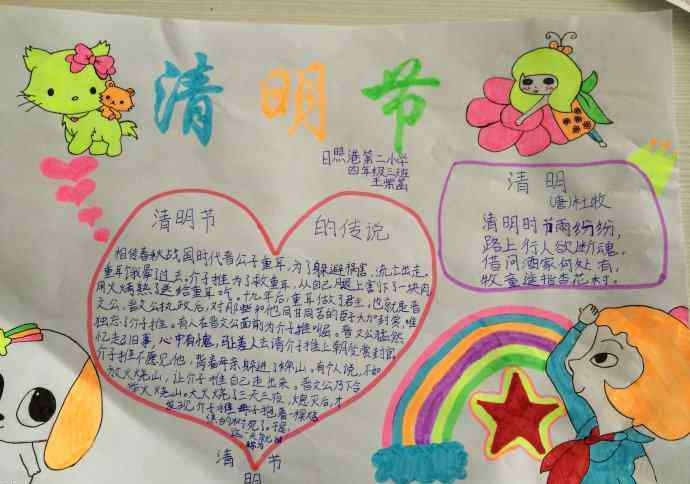 清明节
日照港第二小学
四年级三班
王紫菡
清明节 的传说
相传春秋战国时代晋公子重耳,为了躲避祸害,流亡出走。
重耳饿晕了过去,介子推为了救重耳,从自己腿上割下了一块肉
用火烤熟了送给重耳吃。十九年后,重耳做了君主,也就是晋
文公。晋文公执政后,对那些和他同甘同苦的臣子大加封赏,唯
独忘了介子推。有人在晋文公面前为介子推叫屈。晋文公猛然
忆起旧事,心中有愧,差人去请介子推上朝受赏封官。
介子推不愿见他,背着母亲躲进了绵山。有个人说,不如
放火烧山,让介子推自己走出来。晋文公乃下令
火烧山。大火烧了三天三夜,熄灭后,才
发现介子推母子抱着一棵
清
明
节
清明
(唐)杜牧
清明时节雨纷纷,
路上行人欲断魂。
借问酒家何处有,
牧童遥指杏花村。